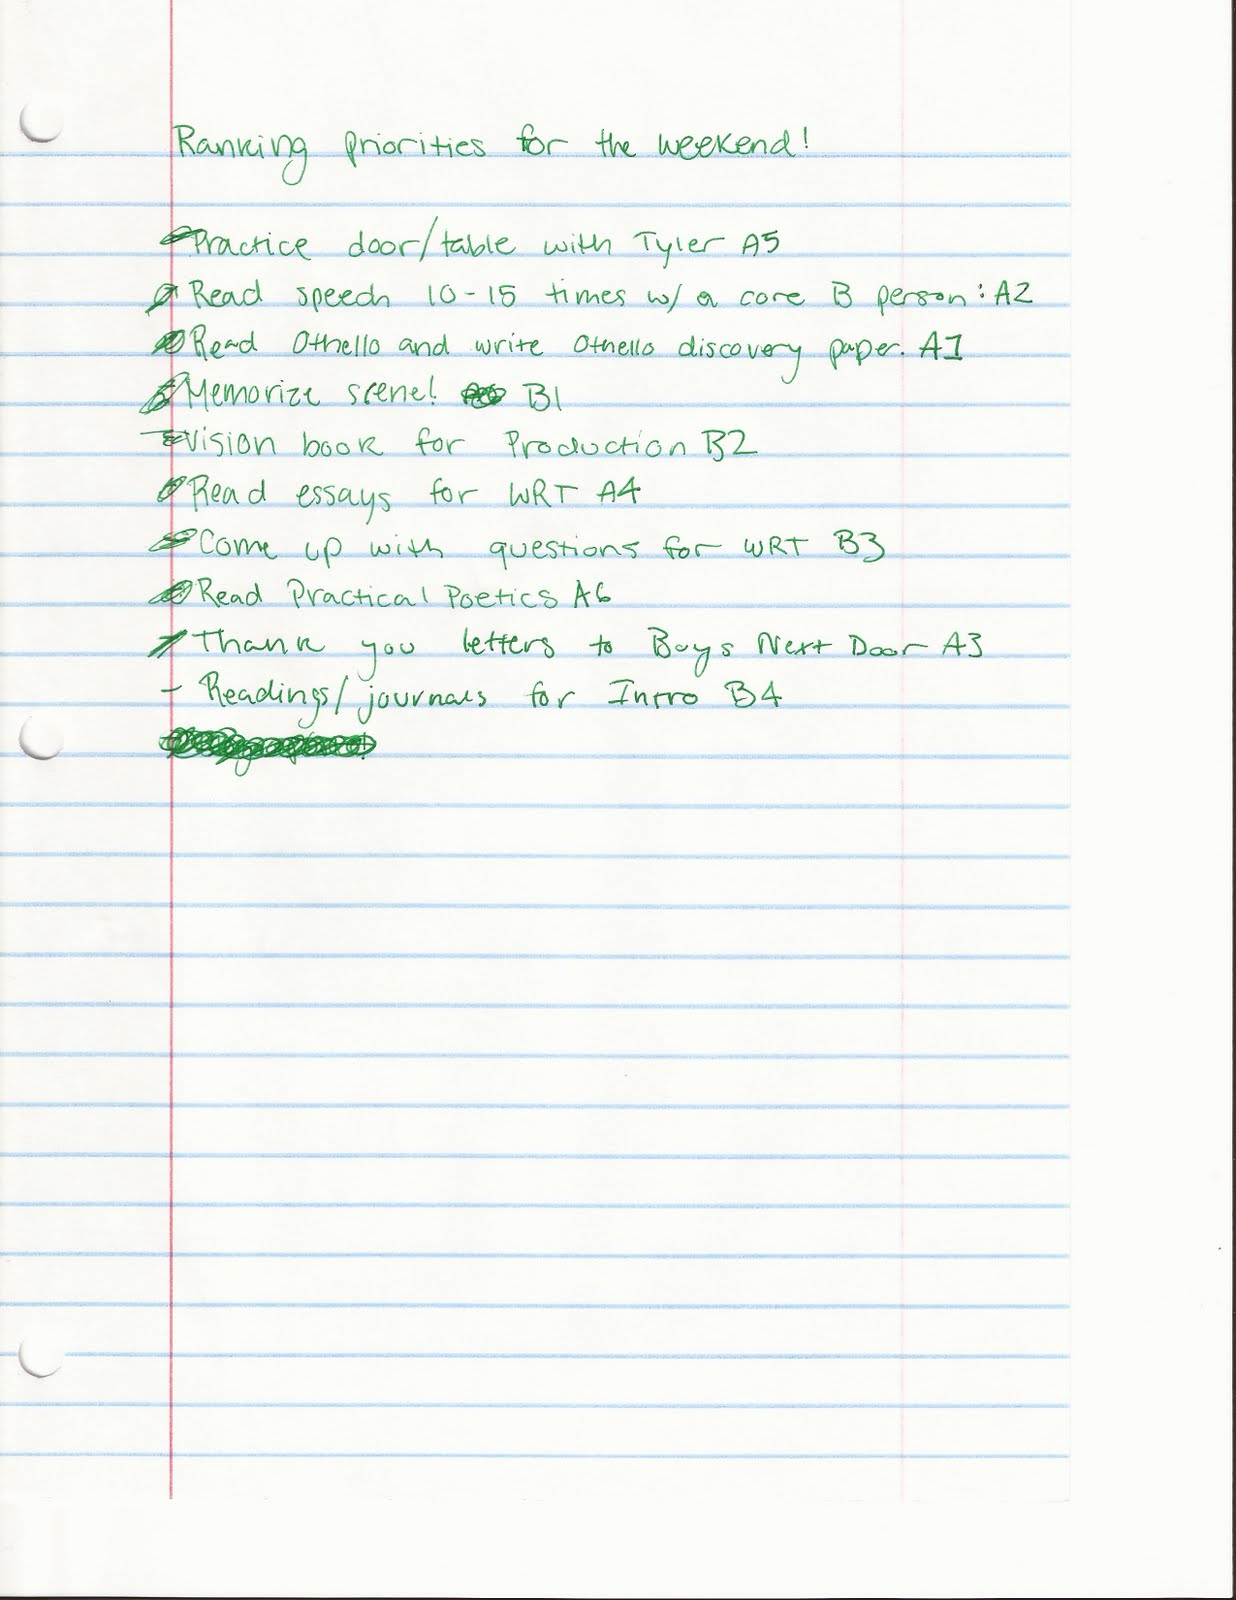 Ranking priorities for the weekend!
Practice door/table with Tyler A5
Read speech 10-15 times w/ a core B person: A2
Read Othello and write Othello discovery paper. A1
Memorize scene! B1
Vision book for Production B2
Read essays for WRT A4
Come up with questions for WRT B3
Read Practical Poetics A6
Thank you letters to Boys Next Door A3
- Readings/journals for Intro B4